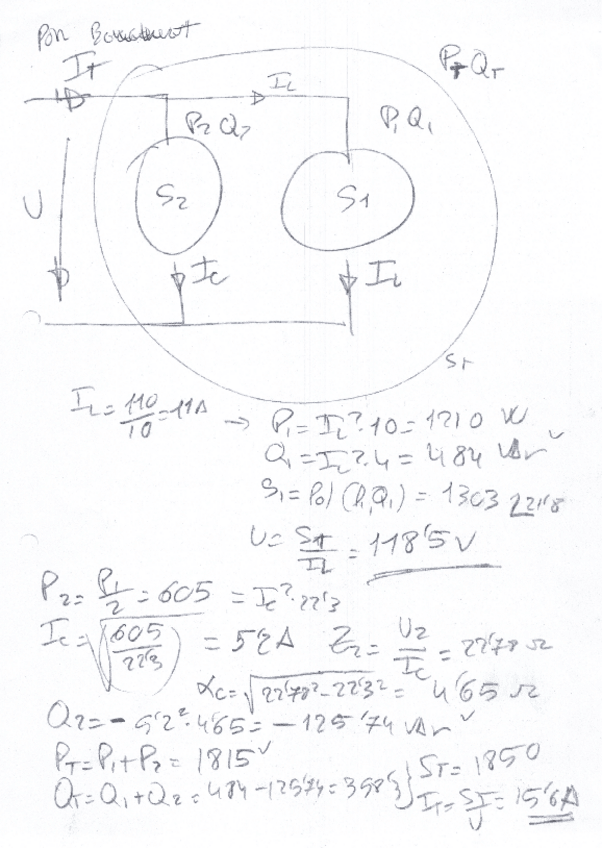 Por Boucherot
IT
IL
PT QT
P2 Q2
P1 Q1
U
S2
S1
IC
IL
ST
IL = 110/10 = 11A → P1 = IL²·10 = 1210 W
Q1 = IL²·4 = 484 VAr
S1 = Pol(P1,Q1) = 1303 ∠21'8
U = S1/IL = 118'5 V
P2 = P1/2 = 605 = IC²·22'3
IC = √(605/22'3) = 5'2A Z2 = U2/IC = 22'78 Ω
XC = √(22'78² - 22'3²) = 4'65 Ω
Q2 = - 5'2²·4'65 = -125'74 VAr
PT = P1 + P2 = 1815
QT = Q1 + Q2 = 484 - 125'74 = 358'3 } ST = 1850
IT = ST/U = 15'6A